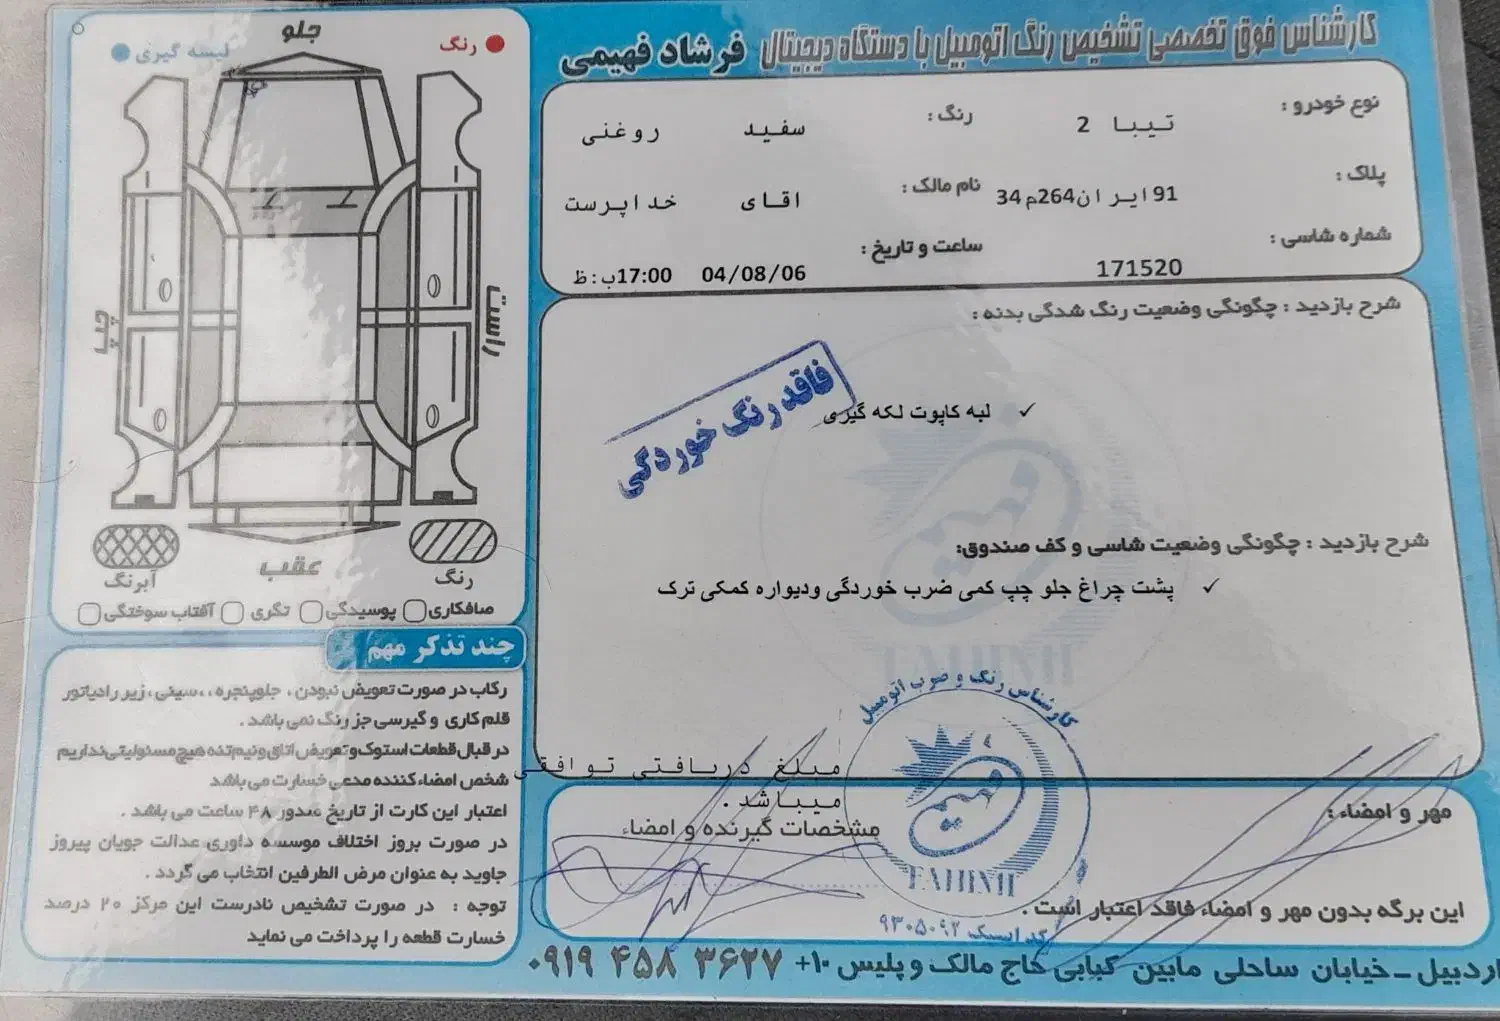 کارشناس فوق تخصصی تشخیص رنگ اتومبیل با دستگاه دیجیتال فرشاد فهیمی
نوع خودرو :
تیبا 2
رنگ :
سفید روغنی
پلاک :
91ایران264م34
نام مالک :
اقای خداپرست
شماره شاسی :
171520
ساعت و تاریخ :
04/08/06 17:00ب:ظ
شرح بازدید : چگونگی وضعیت رنگ شدگی بدنه :
✓ لبه کاپوت لکه گیری
فاقد رنگ خوردگی
شرح بازدید : چگونگی وضعیت شاسی و کف صندوق:
✓ پشت چراغ جلو چپ کمی ضرب خوردگی ودیواره کمکی ترک
FAHIMI
کارشناس رنگ و ضرب اتومبیل
فهیمی
FAHIMI
مبلغ دریافتی توافقی
میباشد .
مشخصات گیرنده و امضاء
مهر و امضاء :
این برگه بدون مهر و امضاء فاقد اعتبار است .
کد ایسیک ۹۳۰۵۰۹۲
اردبیل ـ خیابان ساحلی مابین کبابی حاج مالک و پلیس ۱۰+ ۰۹۱۹ ۴۵۸ ۳۶۲۷
رنگ
لیسه گیری
جلو
چپ
راست
عقب
رنگ
آبرنگ
صافکاری
پوسیدگی
تگری
آفتاب سوختگی
چند تذکر مهم
رکاب در صورت تعویض نبودن ، جلوپنجره ،، سینی ، زیر رادیاتور
قلم کاری و گیرسی جز رنگ نمی باشد .
در قبال قطعات استوک و تعویض اتاق ونیم تنه هیچ مسئولیتی نداریم
شخص امضاء کننده مدعی خسارت می باشد
اعتبار این کارت از تاریخ صدور ۴۸ ساعت می باشد .
در صورت بروز اختلاف موسسه داوری عدالت جویان پیروز
جاوید به عنوان مرض الطرفین انتخاب می گردد .
توجه : در صورت تشخیص نادرست این مرکز ۲۰ درصد
خسارت قطعه را پرداخت می نماید